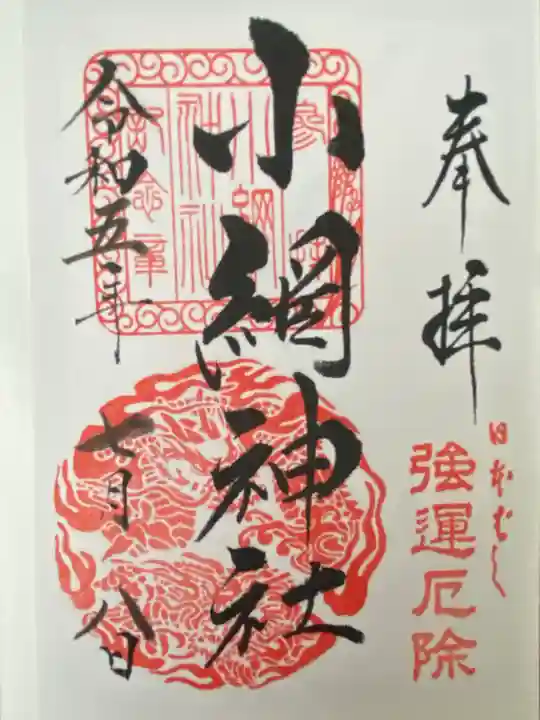 奉拝
日本ばし
強運厄除
小網神社
参拝
小網神社
記念章
令和五年
七月八日